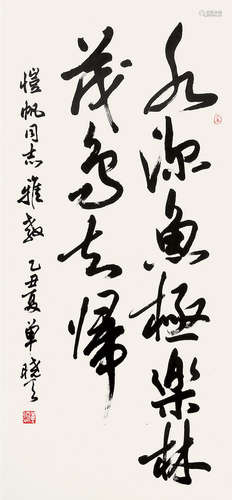 水深魚極樂林
茂鳥知歸
愷帆同志雅教 乙丑夏單曉天